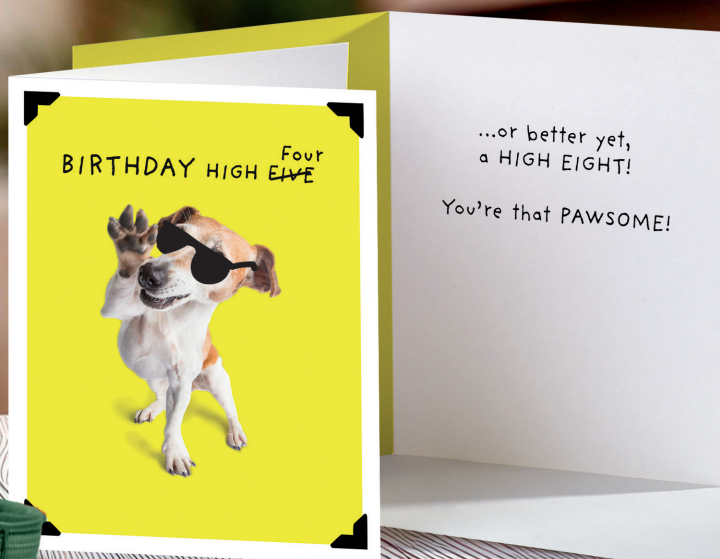 Four
BIRTHDAY HIGH FIVE
...or better yet,
a HIGH EIGHT!
You're that PAWSOME!